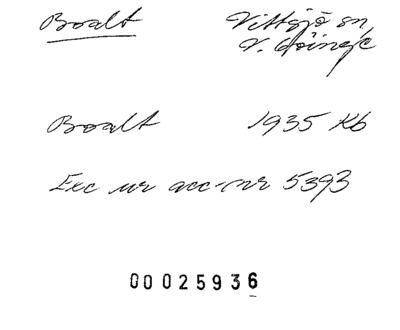 Boalt
Vittsjö sn,
V. Göinge
Boalt 1935 Kb
Exc ur acc-nr 5393
00025936